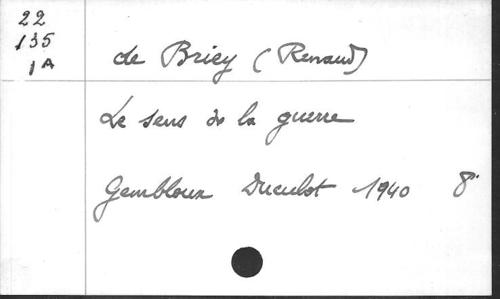 22
135
1A
de Briey (Renaud)
Le sens de la guerre
Gembloux Duculot 1940 8°